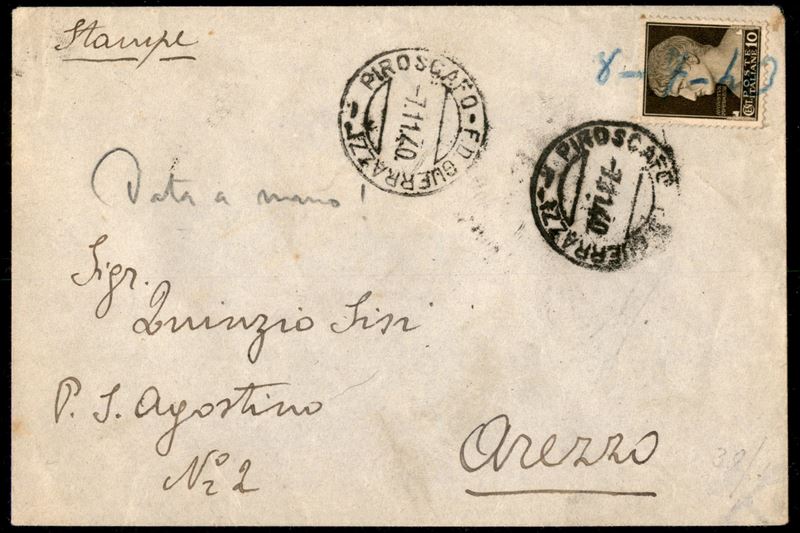 Stampe
PIROSCAFO - F.D. GUERRAZZI
-7.11.40
PIROSCAFO
GUERRAZZI
-7.11.40
POSTE
ITALIANE
10
CENT.
Data a mano!
Sigr.
Quinzio Sisi
P. S. Agostino
No 2
Arezzo